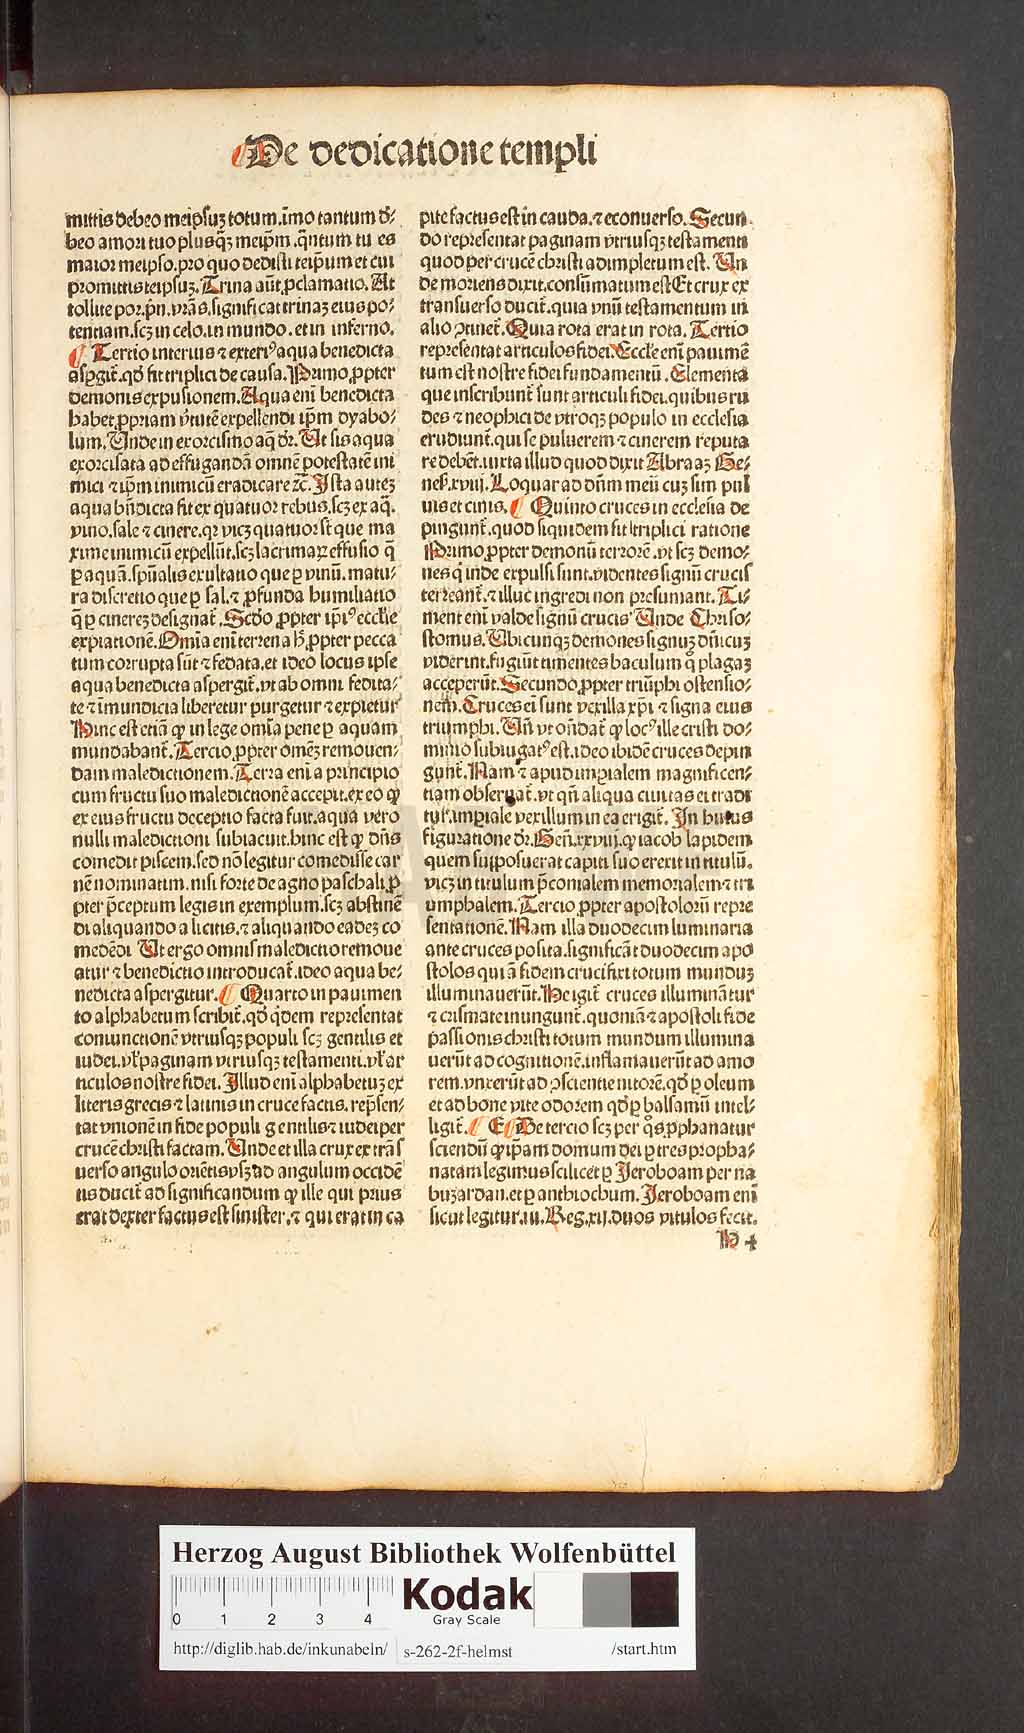 De dedicatione templi
mittis debeo meipsuꝫ totum.īmo tantum d̄e
beo amori tuo plusqꝫ meip̄m .q̄ntum tu es
maior meipso.pro quo dedisti teip̄um et cui
promittis teipsuꝫ. Trina aūt ꝓclamatio. At
tollite por.p̄n.vrās.significat trinaꝫ eius po⸗
tentiam.scꝫ in celo.in mundo.et in inferno.
Tertio interius ⁊ exteriꝰ aqua benedicta
aspgit̄.qd̄ fit triplici de causa. Primo ꝓpter
demonis expulsionem. Aqua eni benedicta
habet ꝓpriam v̄tutē expellendi ip̄m dyabo⸗
lum. Unde in exorcismo aq̄ dr̄. Ut sis aqua
exorcisata ad effugandā omnē potestatē ini
mici ⁊ ip̄m inimicū eradicare ꝛc̄. Ista auteꝫ
aqua bn̄dicta fit ex quatuor rebus.scꝫ ex aq̄.
vino.sale ⁊ cinere.qꝛ vicꝫ quatuor st̄ que ma
xime inimicū expellūt.scꝫ lacrimaꝝ effusio q̄
ꝑ aquā.sp̄ualis exultatio que ꝑ vinū.matu⸗
ra discretio que ꝑ sal.⁊ ꝓfunda humiliatio
q̄ ꝑ cinereꝫ designat̄. Scd̄o ꝓpter ip̄iꝰ eccl̄ie
expiationē. Omīa eni terrena hꝰ ꝓpter pecca
tum corrupta sūt ⁊ fedata.et ideo locus ipse
aqua benedicta aspergit̄.vt ab omni fedita⸗
te ⁊ īmundicia liberetur purgetur ⁊ expietur
Hinc est etiā ꝙ in lege omīa pene ꝑ aquam
mundabant̄. Tercio ꝓpter omēꝫ remouen⸗
dam maledictionem. Terra eni a principio
cum fructu suo maledictionē accepit.ex eo ꝙ
ex eius fructu deceptio facta fuit.aqua vero
nulli maledictioni subiacuit.hinc est ꝙ dn̄s
comedit piscem.sed nō legitur comedisse car
nē nominatim.nisi forte de agno paschali.ꝓ
pter p̄ceptum legis in exemplum.scꝫ abstinē
di aliquando a licitis.⁊ aliquando eadeꝫ co
medēdi Ut ergo omnis maledictio remoue
atur ⁊ benedictio introducat̄.ideo aqua be⸗
nedicta aspergitur. Quarto in pauimen
to alphabetum scribit̄.qd̄ q̇dem representat
coniunctionē vtriusqꝫ populi scꝫ gentilis et
iudei.vl̄ paginam vtriusqꝫ testamenti.vl̄ ar
ticulos nostre fidei. Illud eni alphabetuꝫ ex
literis grecis ⁊ latinis in cruce factis.repn̄sen⸗
tat vnionē in fide populi gentilis ⁊ iudei per
crucē christi factam. Unde et illa crux ex trās
uerso angulo oriētis vsqꝫ ad angulum occidē
tis ducit̄ ad significandum ꝙ ille qui prius
erat dexter factus est sinister.⁊ qui erat in ca
pite factus est in cauda.⁊ econuerso. Secun
do representat paginam vtriusqꝫ testamenti
quod per crucē christi adimpletum est. Un
de moriens dixit.consūmatum est Et crux ex
transuerso ducit̄.quia vnū testamentum in
alio ꝯtinet̄. Quia rota erat in rota. Tertio
representat articulos fidei. Eccl̄e eni pauimē
tum est nostre fidei fundamentū. Elementa
que inscribunt̄ sunt articuli fidei.quibus ru
des ⁊ neophici de vtroqꝫ populo in ecclesia
erudiunt̄.qui se puluerem ⁊ cinerem reputa
re debēt.iuxta illud quod dixit Abraaꝫ Ge⸗
nes̄.xviij. Loquar ad dn̄m meū cuꝫ sim pul
uis et cinis. Quinto cruces in ecclesia de
pingunt̄.quod siquidem fit triplici ratione
Primo ꝓpter demonū terrorē.vt scꝫ demo⸗
nes q̇ inde expulsi sunt.videntes signū crucis
terreant̄.⁊ illuc ingredi non presumant. Ti⸗
ment eni valde signū crucis Unde Chriso⸗
stomus. Ubicunqꝫ demones signuꝫ dn̄icuꝫ
viderint.fugiūt timentes baculum q̊ plagaꝫ
acceperūt. Secundo ꝓpter triūphi ostensio⸗
nem. Cruces ei sunt vexilla xp̄i ⁊ signa eius
triumphi. Un̄ vt on̄dat̄ ꝙ locꝰ ille cristi do⸗
minio subiugatꝰ est.ideo ibidē cruces depin
gunt̄. Nam ⁊ apud imꝑialem magnificen⸗
tiam obseruat̄.vt qn̄ aliqua ciuitas ei tradi
tur̄.imꝑiale vexillum in ea erigit̄. In huius
figuratione dr̄. Gen̄.xxviij.ꝙ iacob lapidem
quem supposuerat capiti suo erexit in titulū.
vicꝫ in titulum p̄conialem memorialem ⁊ tri
umphalem. Tercio ꝓpter apostolorū repre
sentationē. Nam illa duodecim luminaria
ante cruces posita.significāt duodecim apo
stolos qui ā fidem crucifixi totum munduꝫ
illuminauerūt. He igit̄ cruces illuminātur
⁊ crismate inungunt̄.quoniā ⁊ apostoli fide
passionis christi totum mundum illumina
uerūt ad cognitionē.inflamauerūt ad amo
rem.vnxerūt ad ꝯscientie nitorē.qd̄ ꝑ oleum
et ad bone vite odorem qd̄ ꝑ balsamū intel⸗
ligit̄. E De tercio scꝫ per q̊s ꝓphanatur
sciendū ꝙ ipam domum dei ꝑ tres propha⸗
natam legimus scilicet ꝑ Jeroboam per na
buzardan.et ꝑ anthiochum. Jeroboam eni
sicut legitur.iij. Reg.xij.duos vitulos fecit.
H 4
Herzog August Bibliothek Wolfenbüttel
0 1 2 3 4
Kodak
Gray Scale
http://diglib.hab.de/inkunabeln/ s-262-2f-helmst /start.htm